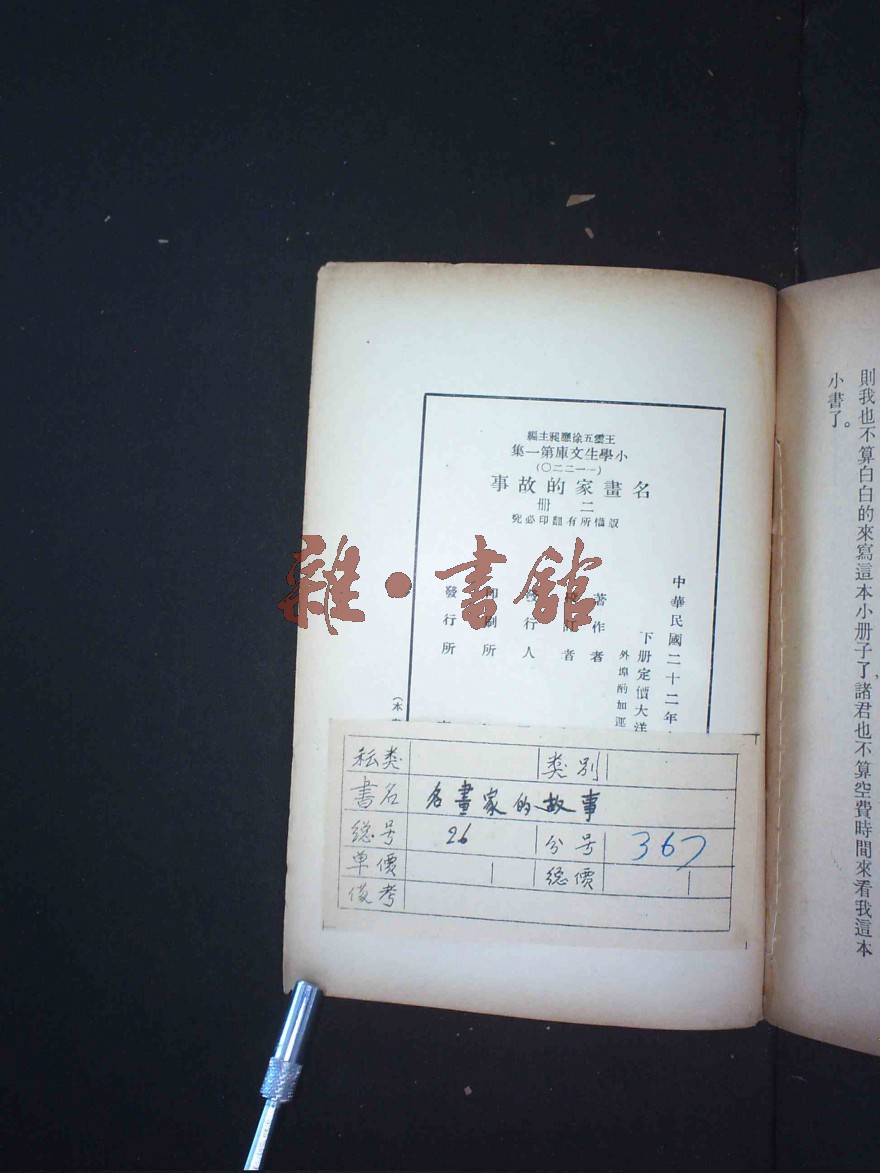 則我也不算白白的來寫這本小册子了，諸君也不算空費時間來看我這本
小書了。
王雲五徐應昶主編
小學生文庫第一集
(一一二二〇)
名畫家的故事
二冊
版權所有翻印必究
中華民國二十二年
下册定價大洋
外埠酌加運
著作者
訂者
發行人
印刷所
發行所
(本
雜·書館
类别
書名 名畫家的故事
總号 26 分号 367
单價 總價
俻考